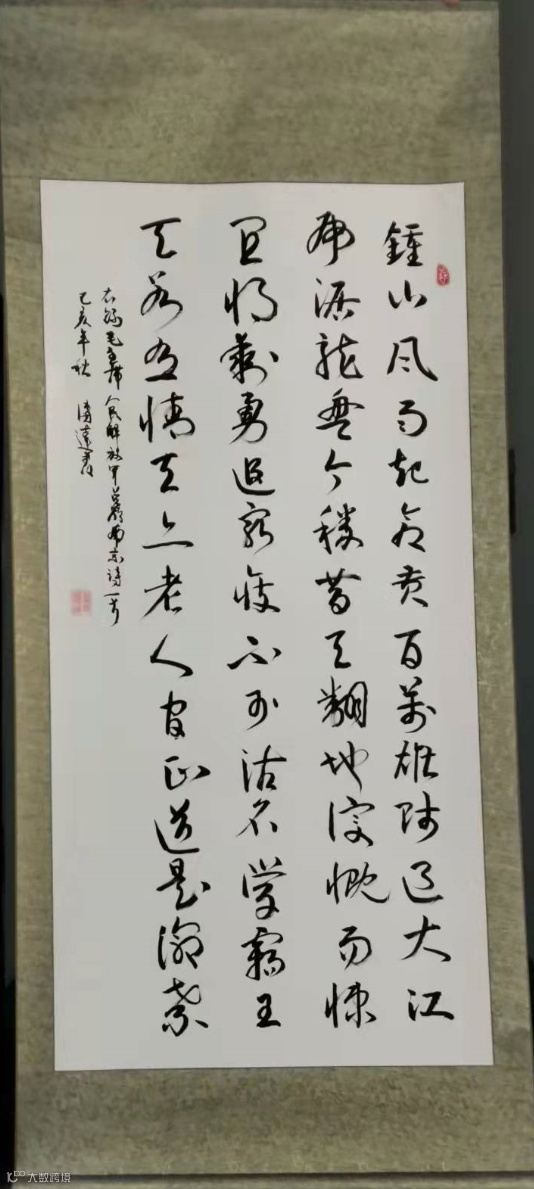 鍾山风雨起倉黄百萬雄师过大江
虎踞龍盘今勝昔天翻地覆慨而慷
宜将剩勇追窮寇不可沽名学霸王
天若有情天亦老人间正道是滄桑
右録毛主席人民解放军占领南京诗一首
己亥年秋
大数跨境